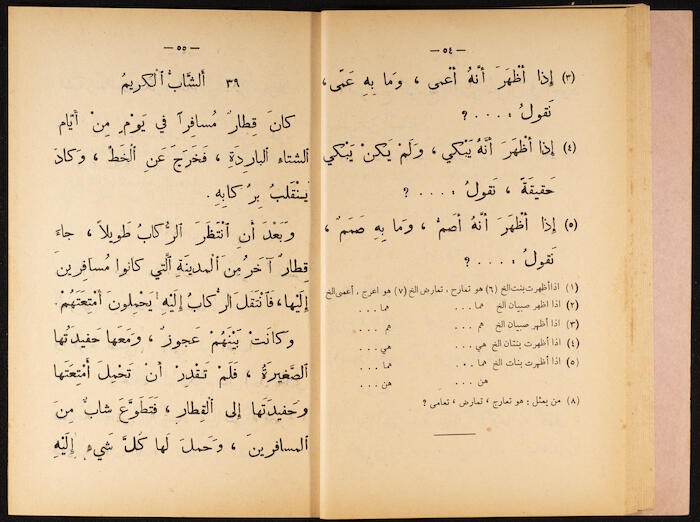 — ٥٤ —
(٣) إذا أظْهَرَ أنَّهُ أعْمى ، وَما بِهِ عَمًى،
نَقولُ : . . . . ?
(٤) إذا أظْهَرَ أنَّهُ يَبْكي ، وَلَمْ يَكُنْ يَبْكي
حَقيقَةً ، نَقولُ : . . . . ?
(٥) إذا أظْهَرَ أنَّهُ أصَمُّ ، وَما بِهِ صَمَمٌ ،
نَقولُ : . . . . ?
(١) اذا أظهرت بنت الخ (٦) هو تعارج، تمارض الخ (٧) هو اعرج ، أعمى الخ
(٢) اذا أظهر صبيان الخ هما ... هما ...
(٣) اذا أظهر صبيان الخ هم ... هم ...
(٤) اذا أظهرت بنتان الخ هي ... هي ...
(٥) اذا أظهرت بنات الخ هما ... هما ...
هن ... هن ...
(٨) من يمثل : هو تعارج ، تمارض ، تعامى ؟
— ٥٥ —
٣٩ ألشّابُّ ٱلْكَريمُ
كانَ قِطارٌ مُسافِراً في يَوْمٍ مِنْ أيّامِ
ٱلشتاءِ ٱلبارِدَةِ ، فَخَرَجَ عَنِ ٱلخَطِّ ، وَكادَ
يَنْقَلِبُ بِرُكّابِهِ.
وَبَعْدَ أنِ ٱنْتَظَرَ ٱلرُّكّابُ طَويلاً ، جاءَ
قِطارٌ آخَرُ مِنَ ٱلمَدينَةِ ٱلَّتي كانوا مُسافِرين
إلَيْها، فَٱنْتَقَلَ ٱلرُّكّابُ إلَيْهِ يَحْمِلون أمْتِعَتَهُمْ.
وكانَتْ بَيْنَهُمْ عَجوزٌ ، وَمَعَها حَفيدَتُها
ٱلصَّغيرَةُ ، فَلَمْ تَقْدِرْ أنْ تَحْمِلَ أمْتِعَتَها
وَحَفيدَتَها إلى ٱلقِطارِ ، فَتَطَوَّعَ شابٌّ مِنَ
ٱلمسافِرينَ ، وَحَملَ لَها كُلَّ شَيءٍ إلَيْهِ